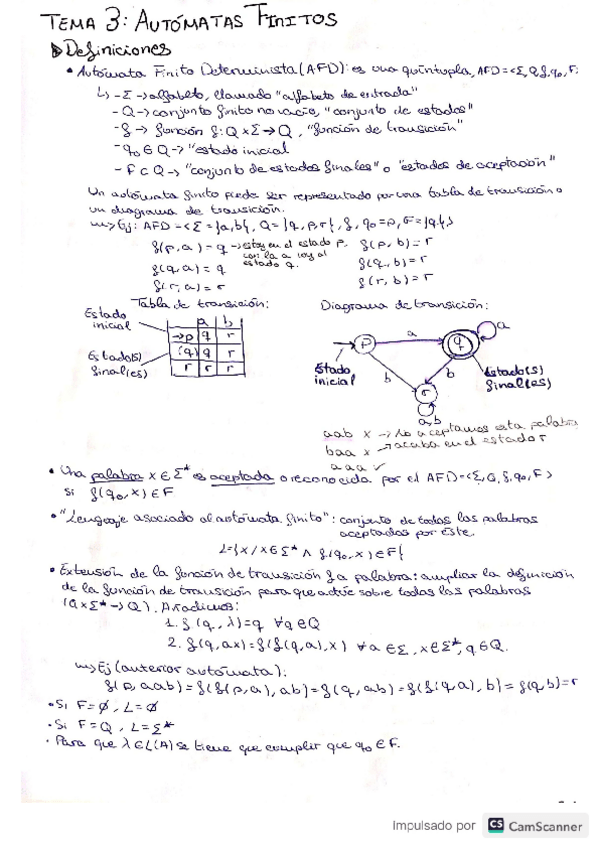 TEMA 3: AUTÓMATAS FINITOS
Definiciones
• Autómata Finito Determinista (AFD): es una quíntupla, AFD=<Σ,Q,f,q₀,F>
↳ -Σ → alfabeto, llamado "alfabeto de entrada"
- Q → conjunto finito no vacío, "conjunto de estados"
- f → función f: Q x Σ → Q, "función de transición"
- q₀ ∈ Q → "estado inicial
- F ⊂ Q → "conjunto de estados finales" o "estados de aceptación"
Un autómata finito puede ser representado por una tabla de transición o
un diagrama de transición.
Ej: AFD = <Σ = {a,b}, Q = {q,p,r}, f, q₀=p, F={q}>
f(p,a) = q → estoy en el estado p, con la a voy al estado q. f(p,b) = r
f(q,a) = q f(q,b) = r
f(r,a) = r f(r,b) = r
Tabla de transición: Diagrama de transición:
Estado inicial
a b
→p q r
(q) q r
r r r
Estado(s) finales(es)
p a q a
b b
r
a,b
Estado inicial
Estado(s) final(es)
aab x → No aceptamos esta palabra
baa x → acaba en el estado r
aaa ✓
• Una palabra x ∈ Σ* es aceptada o reconocida por el AFD=<Σ,Q,f,q₀,F>
si f(q₀,x) ∈ F
• "Lenguaje asociado al autómata finito": conjunto de todas las palabras
aceptadas por éste.
L={x/x∈Σ* ∧ f(q₀,x)∈F}
• Extensión de la función de transición f a palabra: ampliar la definición
de la función de transición para que actúe sobre todas las palabras
(Q x Σ* → Q). Añadimos:
1. f(q,λ)=q ∀q∈Q
2. f(q,ax)=f(f(q,a),x) ∀a∈Σ, x∈Σ*, q∈Q.
Ej (anterior autómata):
f(p,aab)=f(f(p,a),ab)=f(q,ab)=f(f(q,a),b)=f(q,b)=r
• Si F=∅, L=∅
• Si F=Q, L=Σ*
• Para que λ∈L(A) se tiene que cumplir que q₀∈F.
Impulsado por CS CamScanner